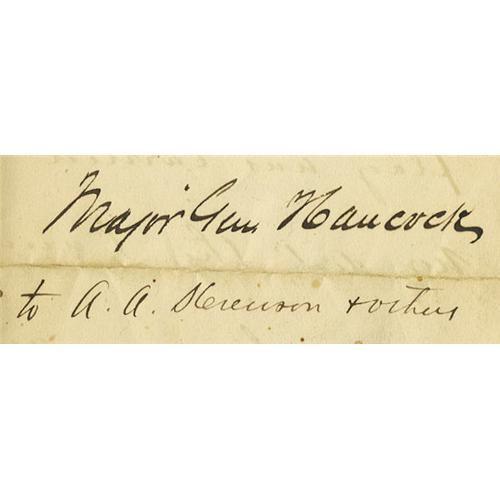 Major Gen Hancock
to A. A. + others